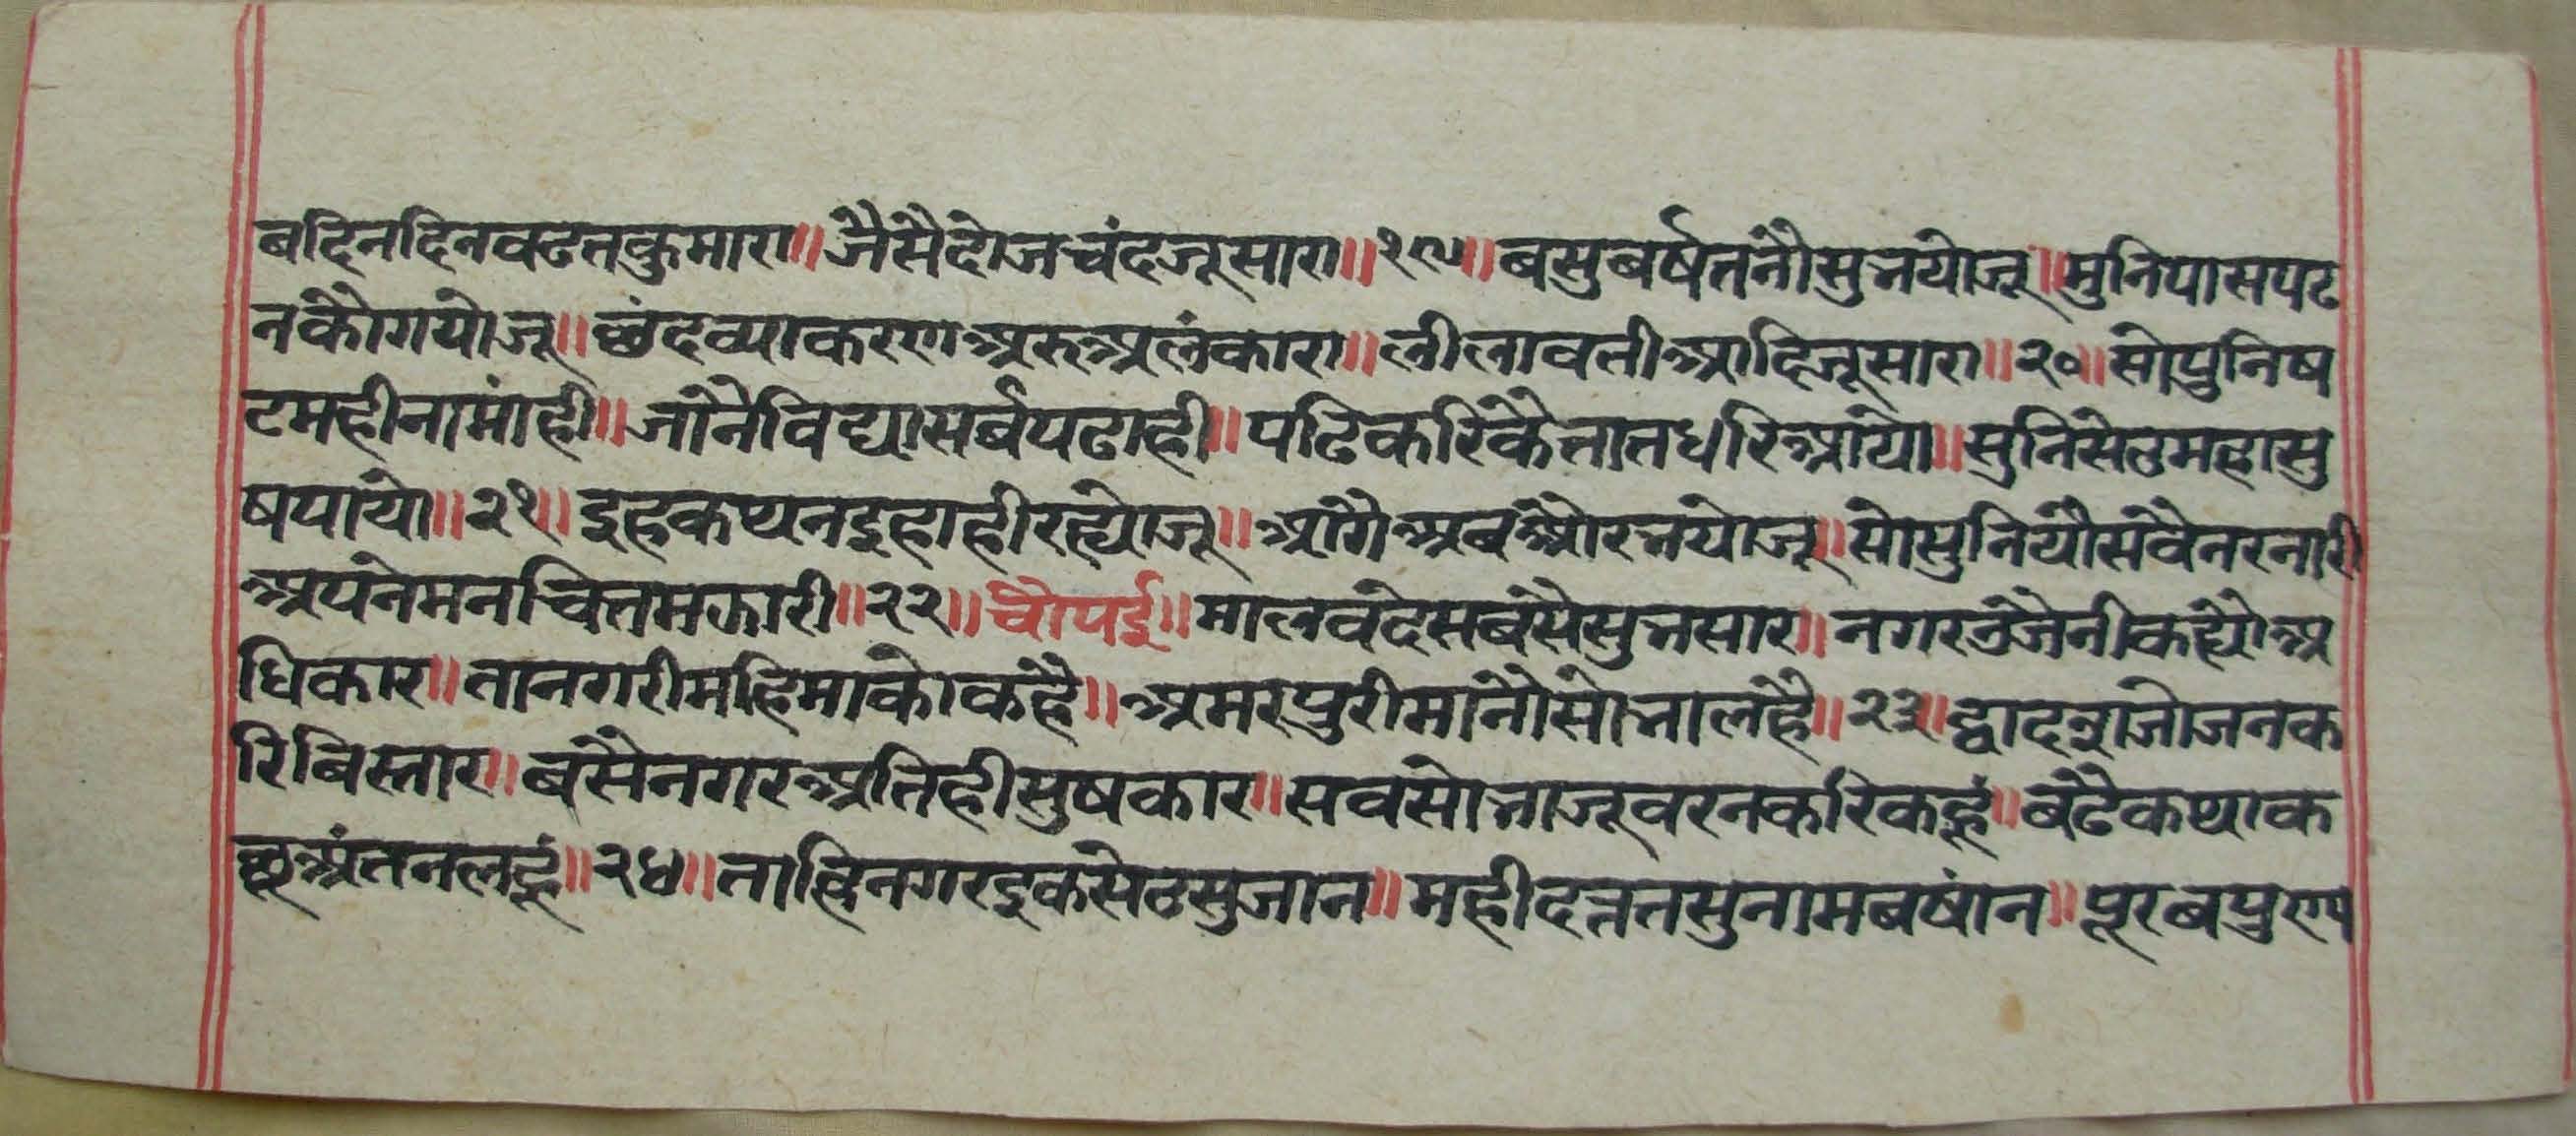 बदिनदिनवढतकुमारा॥जैसैदोजचंदजूसारा॥१९॥बसुबर्षतनौसुभयोजू॥मुनिपासपढ
नकौगयोजू॥छंदव्याकरणअरुअलंकारा॥लीलावतीआदिजूसारा॥२०॥सोपुनिष
टमहीनामांही॥जांनैविद्यासर्बपढाही॥पढिकरिकैतातधरिआयो॥सुनिसेठमहासु
षपायो॥२१॥इहकथनइहाहीरह्योजू॥आगैअबऔरभयोजू॥सोसुनियौसवैनरनारी
अपनेमनचित्तमझारी॥२२॥चौपई॥मालवदेसबसैसुभसार॥नगरउजैनीकह्योअ
धिकार॥तानगरीमहिमाकोकहै॥अमरपुरीमांनौसोभालहै॥२३॥द्वादशजोजनक
रिबिस्तार॥बसैनगरअतिहीसुषकार॥सवसोभाजूवरनकरिकहूं॥बंढैकथाक
छूअंतनलहूं॥२४॥ताहिनगरइकसेठसुजान॥महीदत्ततसुनामबषांन॥पूरबपुण्य